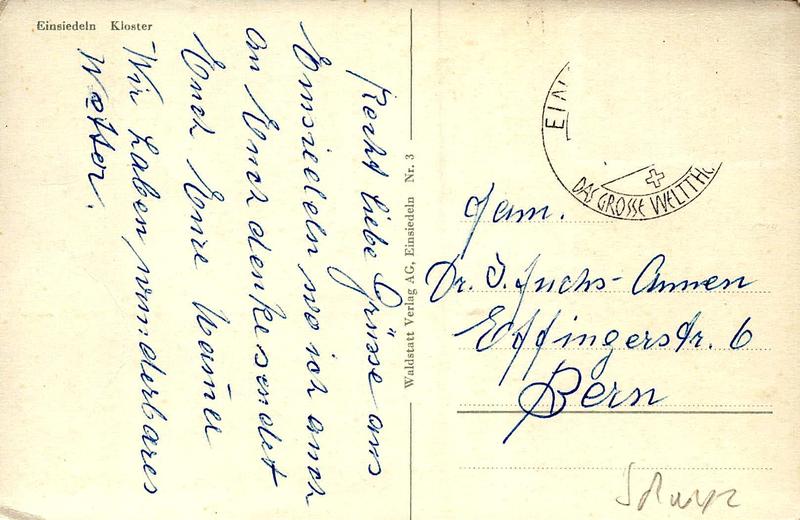 Einsiedeln Kloster
Recht liebe Grüsse aus
Einsiedeln wo ich auch
an Euch denke sendet
Euch Eure
Wir haben wunderbares
Wetter.
Waldstatt Verlag AG, Einsiedeln Nr. 3
EIN
DAS GROSSE WELTTH
Fam.
Dr. J. Fuchs-Annen
Effingerstr. 6
Bern